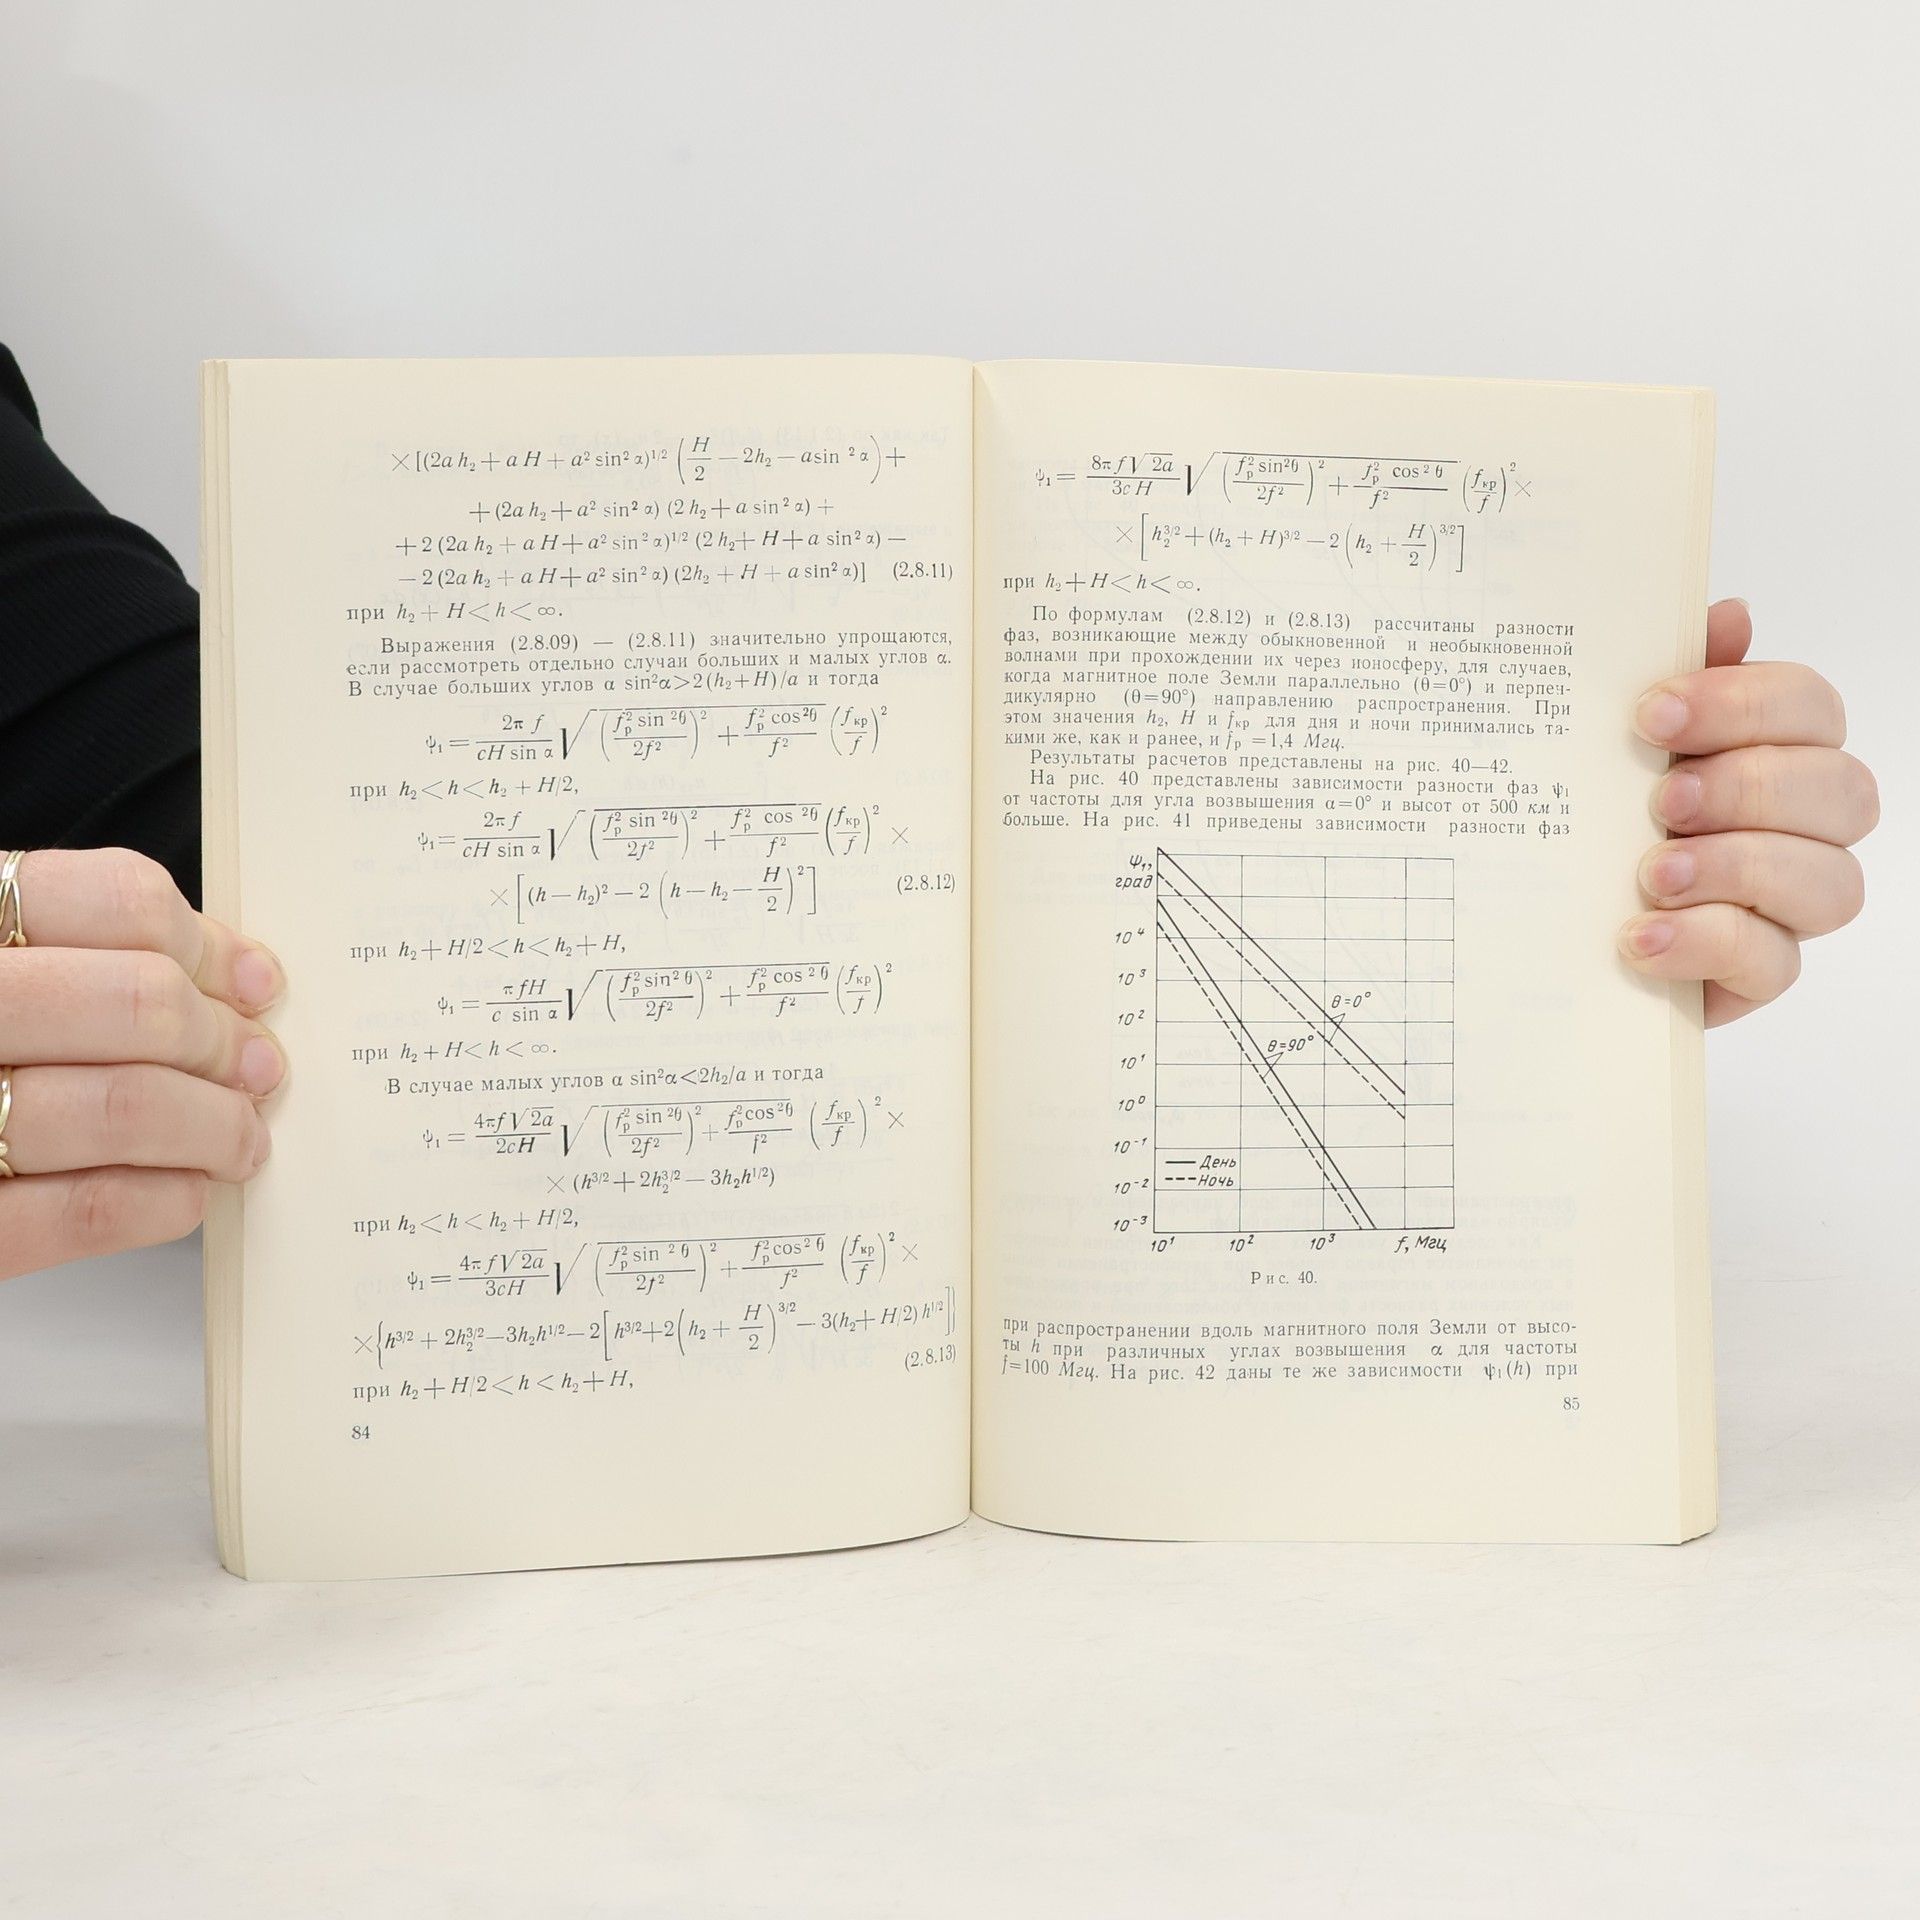 × [(2a h₂ + a H + a² sin² α)^1/2 (H/2 − 2h₂ − a sin² α) +
+ (2a h₂ + a² sin² α) (2 h₂ + a sin² α) +
+ 2 (2a h₂ + a H + a² sin² α)^1/2 (2 h₂ + H + a sin² α) −
− 2 (2a h₂ + a H + a² sin² α) (2h₂ + H + a sin² α)] (2.8.11)
при h₂ + H < h < ∞.
Выражения (2.8.09) — (2.8.11) значительно упрощаются,
если рассмотреть отдельно случаи больших и малых углов α.
В случае больших углов α sin²α>2(h₂+H)/a и тогда
ψ₁ = 2π f/cH sin α √((fₚ² sin ²θ/2f²)² + fₚ² cos²θ/f²) (fкр/f)²
при h₂ < h < h₂ + H/2,
ψ₁ = 2π f/cH sin α √((fₚ² sin ²θ/2f²)² + fₚ² cos ²θ/f²) (fкр/f)² ×
× [(h − h₂)² − 2 (h − h₂ − H/2)²] (2.8.12)
при h₂ + H/2 < h < h₂ + H,
ψ₁ = π fH/c sin α √((fₚ² sin² θ/2f²)² + fₚ² cos ² θ/f²) (fкр/f)²
при h₂ + H < h < ∞.
В случае малых углов α sin²α<2h₂/a и тогда
ψ₁ = 4π f √2a/2cH √((fₚ² sin ²θ/2f²)² + fₚ² cos ²θ/f²) (fкр/f)² ×
× (h^3/2 + 2h₂^3/2 − 3h₂h^1/2)
при h₂ < h < h₂ + H/2,
ψ₁ = 4π f √2a/3cH √((fₚ² sin ² θ/2f²)² + fₚ² cos ² θ/f²) (fкр/f)² ×
× {h^3/2 + 2h₂^3/2 − 3h₂h^1/2 − 2 [h^3/2 + 2 (h₂ + H/2)^3/2 − 3(h₂ + H/2) h^1/2]}
(2.8.13)
при h₂ + H/2 < h < h₂ + H,
84
ψ₁ = 8π f √2a/3c H √((fₚ² sin²θ/2f²)² + fₚ² cos ² θ/f²) (fкр/f)² ×
× [h₂^3/2 + (h₂ + H)^3/2 − 2 (h₂ + H/2)^3/2]
при h₂ + H < h < ∞.
По формулам (2.8.12) и (2.8.13) рассчитаны разности
фаз, возникающие между обыкновенной и необыкновенной
волнами при прохождении их через ионосферу, для случаев,
когда магнитное поле Земли параллельно (θ=0°) и перпен-
дикулярно (θ=90°) направлению распространения. При
этом значения h₂, H и fкр для дня и ночи принимались та-
кими же, как и ранее, и fₚ =1,4 Мгц.
Результаты расчетов представлены на рис. 40—42.
На рис. 40 представлены зависимости разности фаз ψ₁
от частоты для угла возвышения α=0° и высот от 500 км и
больше. На рис. 41 приведены зависимости разности фаз
ψ₁,
град
10⁴
10³
θ=0°
10²
θ=90°
10¹
10⁰
10⁻¹
День
10⁻²
Ночь
10⁻³
10¹ 10² 10³ f, Мгц
Рис. 40.
при распространении вдоль магнитного поля Земли от высо-
ты h при различных углах возвышения α для частоты
f=100 Мгц. На рис. 42 даны те же зависимости ψ₁(h) при
85